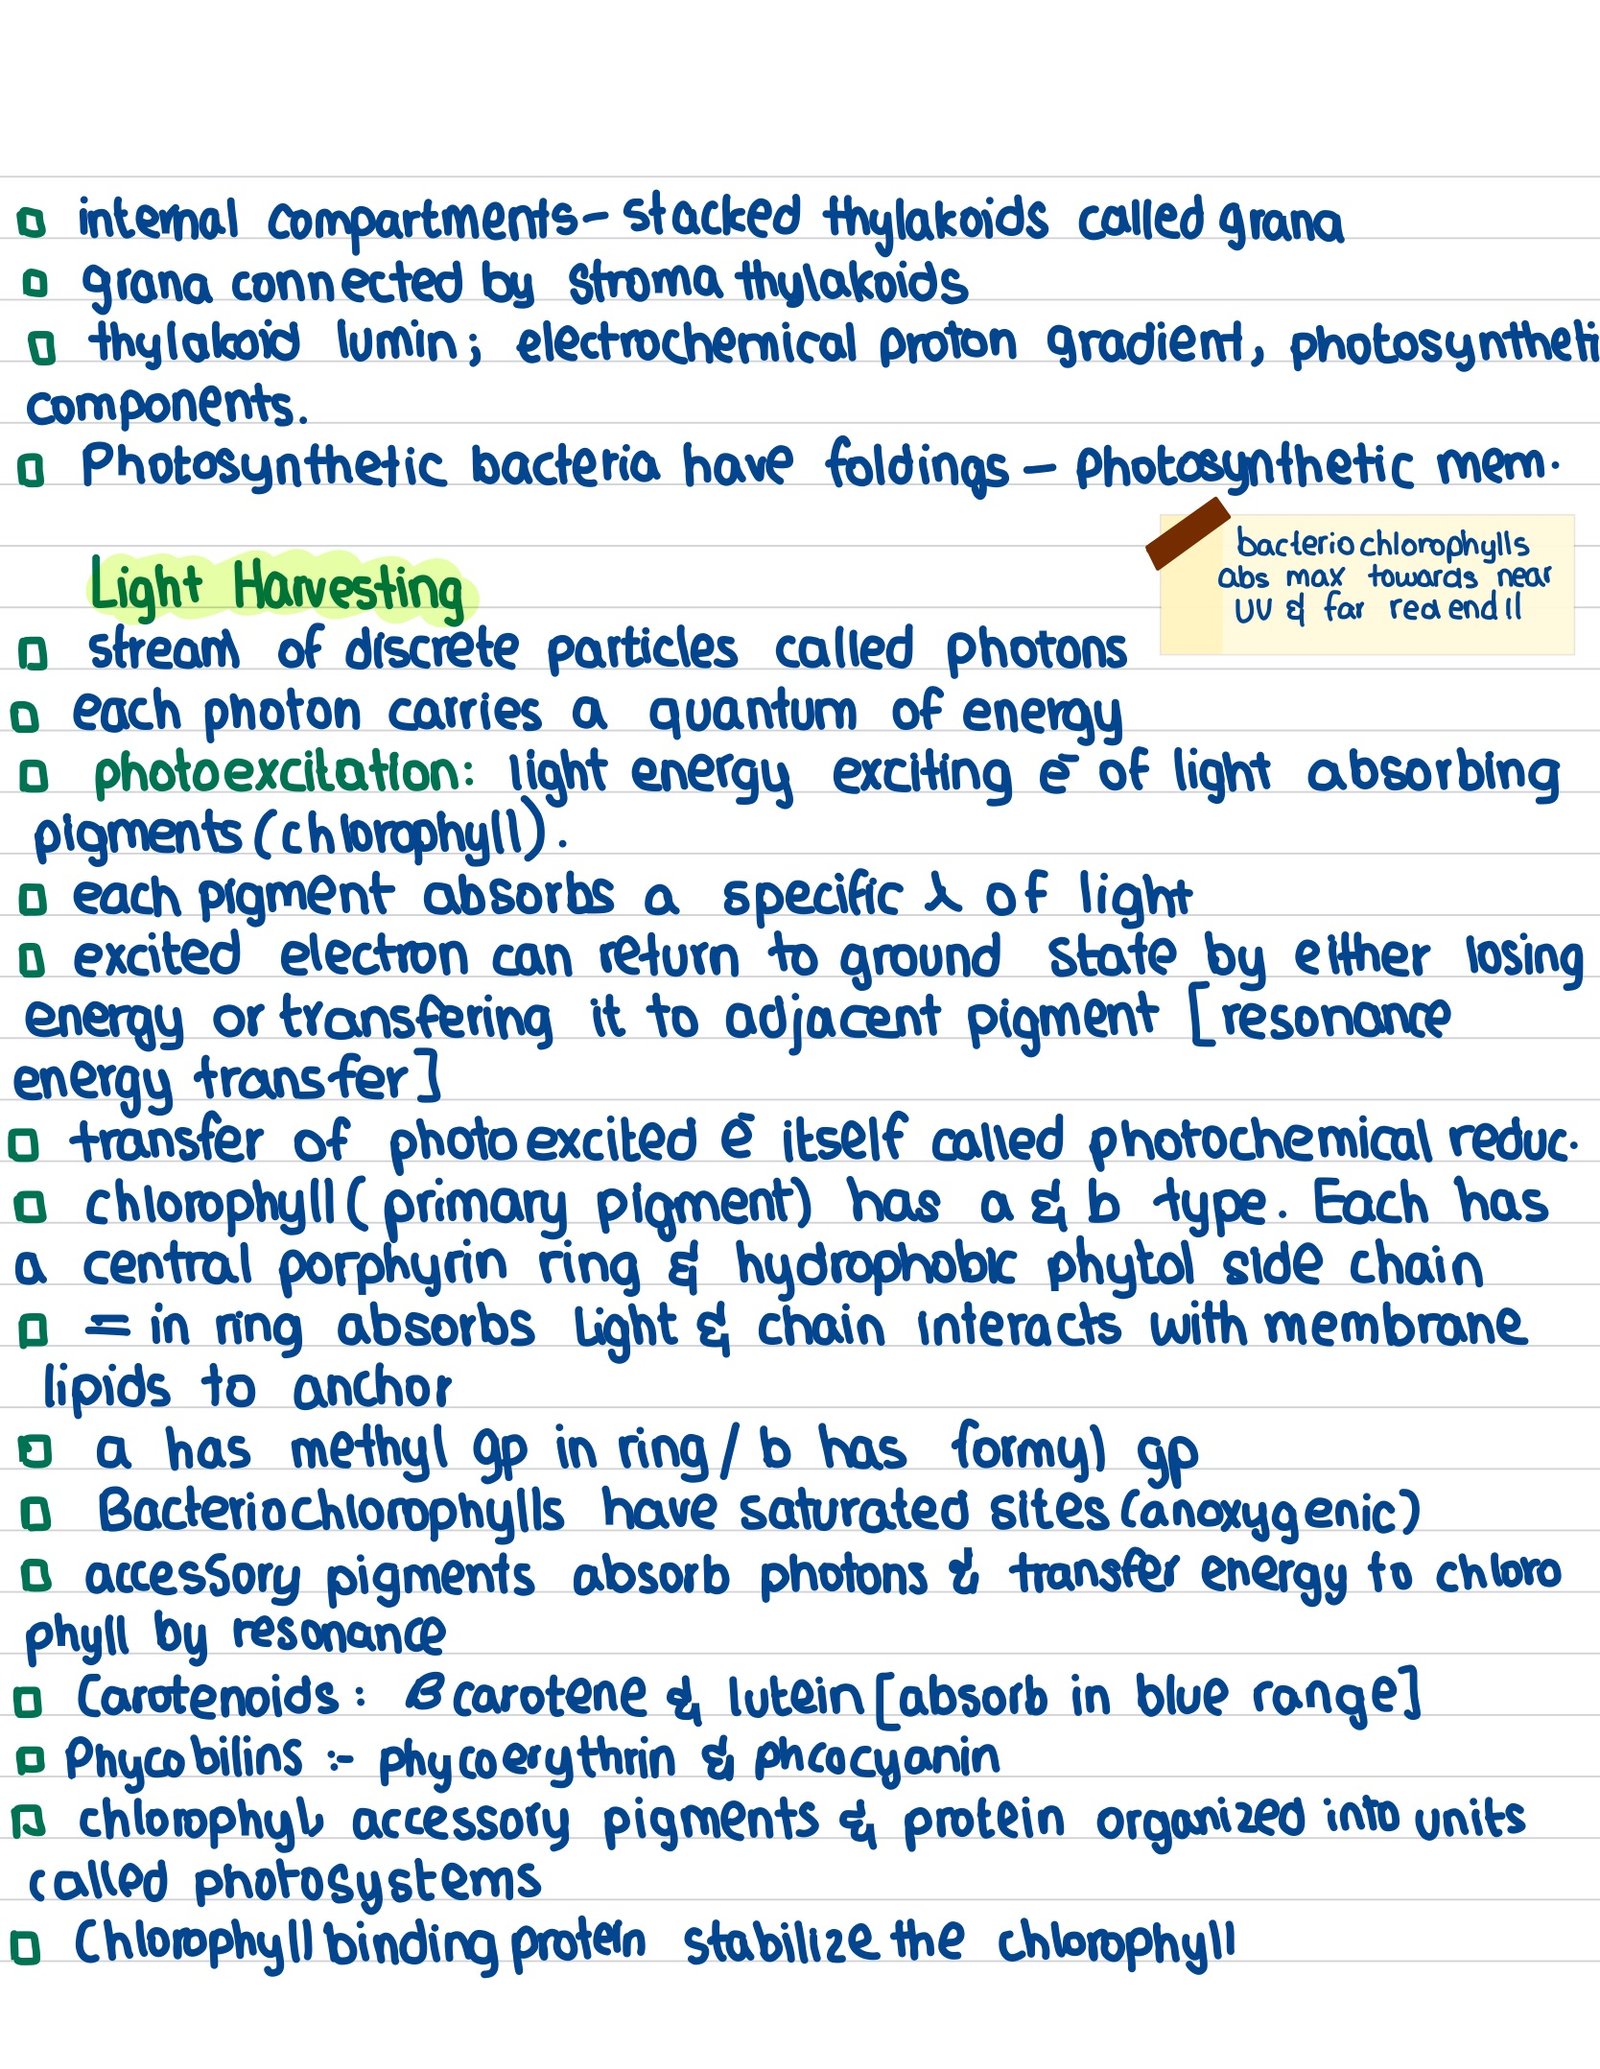 internal compartments- stacked thylakoids called grana
grana connected by stroma thylakoids
thylakoid lumin; electrochemical proton gradient, photosyntheti
components.
Photosynthetic bacteria have foldings - photosynthetic mem.
bacteriochlorophylls
abs max towards near
UV & far red end ll
Light Harvesting
stream of discrete particles called photons
each photon carries a quantum of energy
photoexcitation: light energy exciting e⁻ of light absorbing
pigments (chlorophyll).
each pigment absorbs a specific λ of light
excited electron can return to ground state by either losing
energy or transfering it to adjacent pigment [resonance
energy transfer]
transfer of photoexcited e⁻ itself called photochemical reduc.
chlorophyll (primary pigment) has a & b type. Each has
a central porphyrin ring & hydrophobic phytol side chain
= in ring absorbs light & chain interacts with membrane
lipids to anchor
a has methyl gp in ring / b has formyl gp
Bacteriochlorophylls have saturated sites (anoxygenic)
accessory pigments absorb photons & transfer energy to chloro
phyll by resonance
Carotenoids: B carotene & lutein [absorb in blue range]
Phycobilins :- phycoerythrin & phcocyanin
chlorophyl, accessory pigments & protein organized into units
called photosystems
Chlorophyll binding protein stabilize the chlorophyll